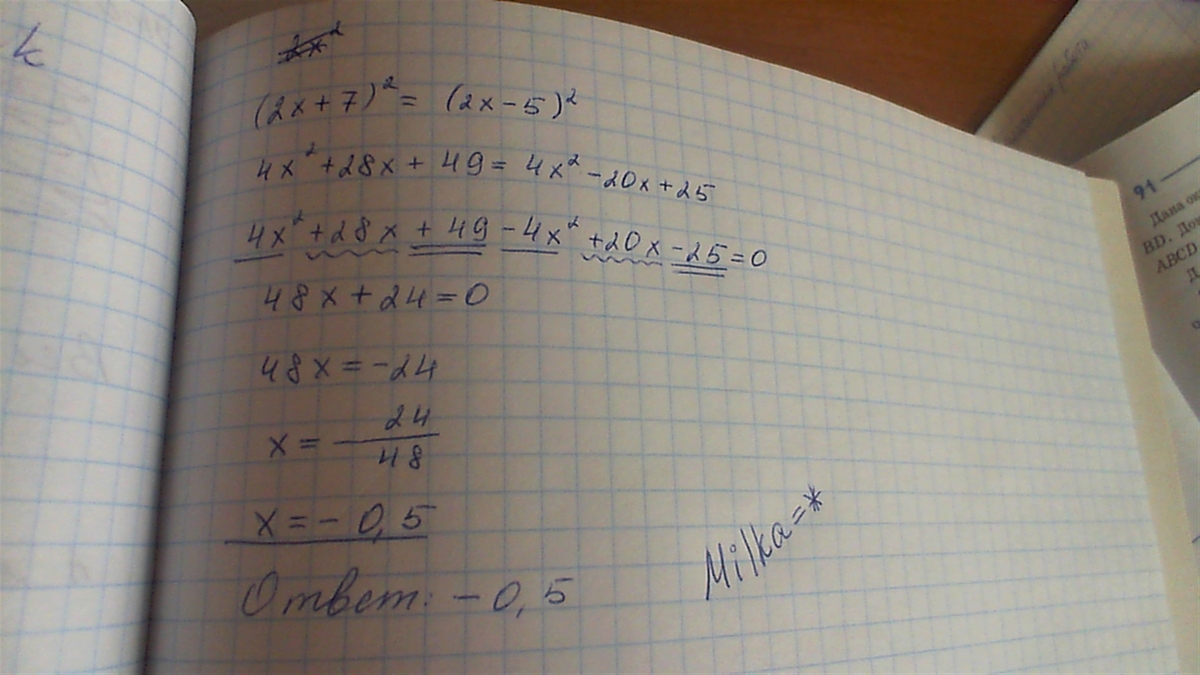 (2x+7)² = (2x-5)²
4x²+28x+49=4x²-20x+25
4x²+28x+49-4x²+20x-25=0
48x+24=0
48x=-24
x=-24/48
x=-0,5
Ответ: -0,5
Milka=*
91
Дана
BD. До
ABCD